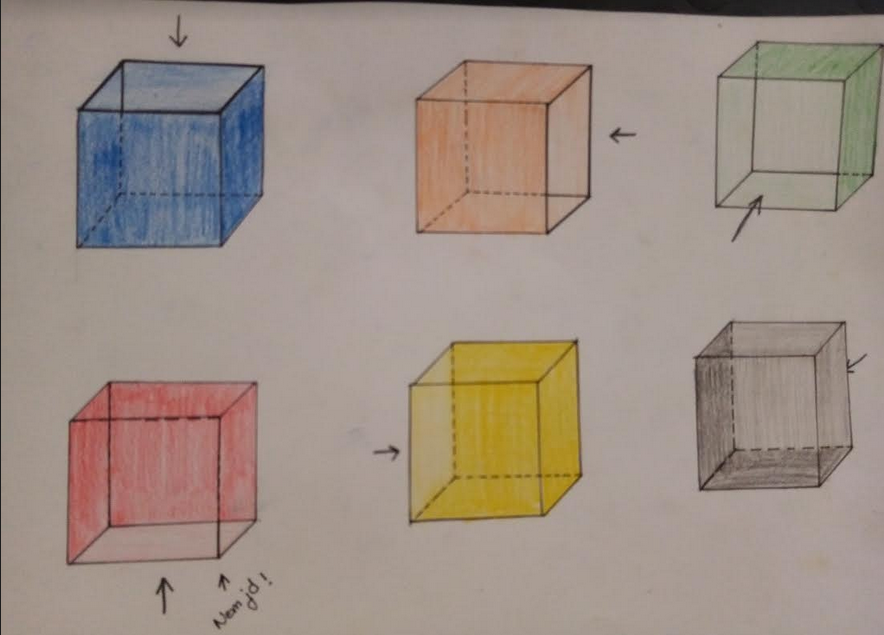 Nem jó!